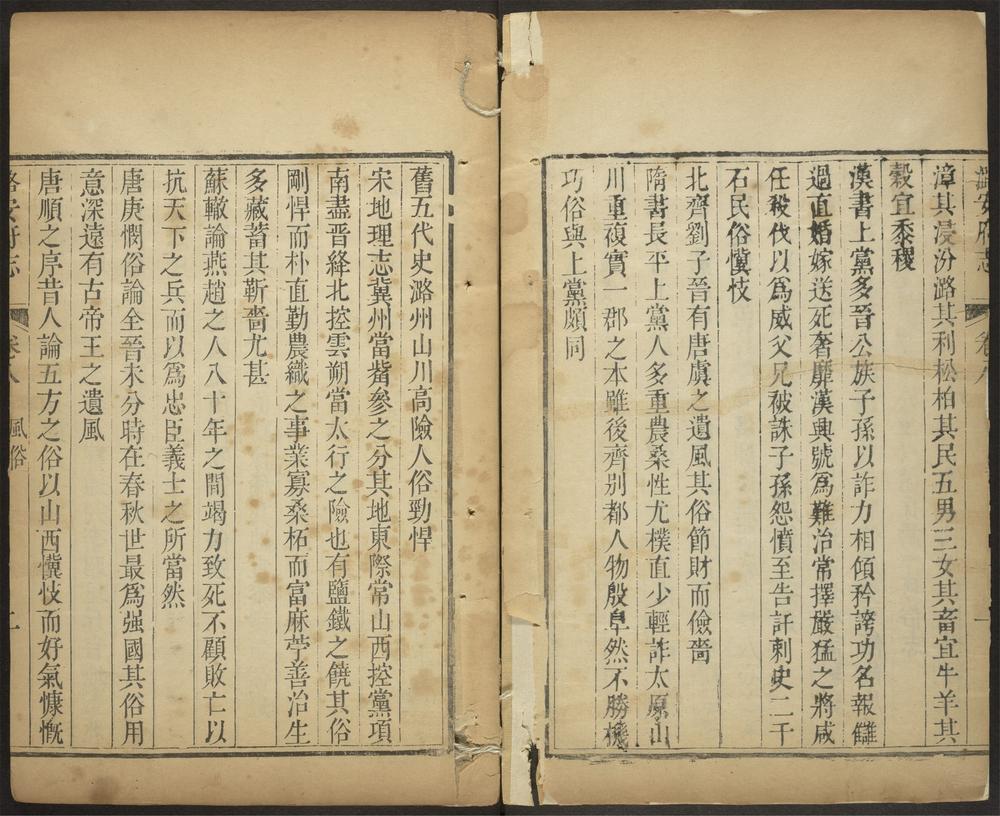 潞安府志 卷八 一
漳其浸汾潞其利松柏其民五男三女其畜宜牛羊其
穀宜黍稷
漢書上黨多晉公族子孫以詐力相傾矜誇功名報讎
過直婚嫁送死奢靡漢興號爲難治常擇嚴猛之將咸
任殺伐以爲威父兄被誅子孫怨憤至告訐刺史二千
石民俗懻忮
北齊劉子晉有唐虞之遺風其俗節財而儉嗇
隋書長平上黨人多重農桑性尤樸直少輕詐太原山
川重複實一郡之本雖後齊别都人物殷阜然不勝機
巧俗與上黨頗同
舊五代史潞州山川高險人俗勁悍
宋地理志冀州當觜參之分其地東際常山西控黨項
南盡晉絳北控雲朔當太行之險也有鹽鐵之饒其俗
剛悍而朴直勤農織之事業寡桑柘而富麻苧善治生
多藏蓄其靳嗇尤甚
蘇轍論燕趙之人八十年之間竭力致死不顧敗亡以
抗天下之兵而以爲忠臣義士之所當然
唐庚憫俗論全晉未分時在春秋世最爲强國其俗用
意深遠有古帝王之遺風
唐順之序昔人論五方之俗以山西懻忮而好氣慷慨
潞安府志 卷八 風俗